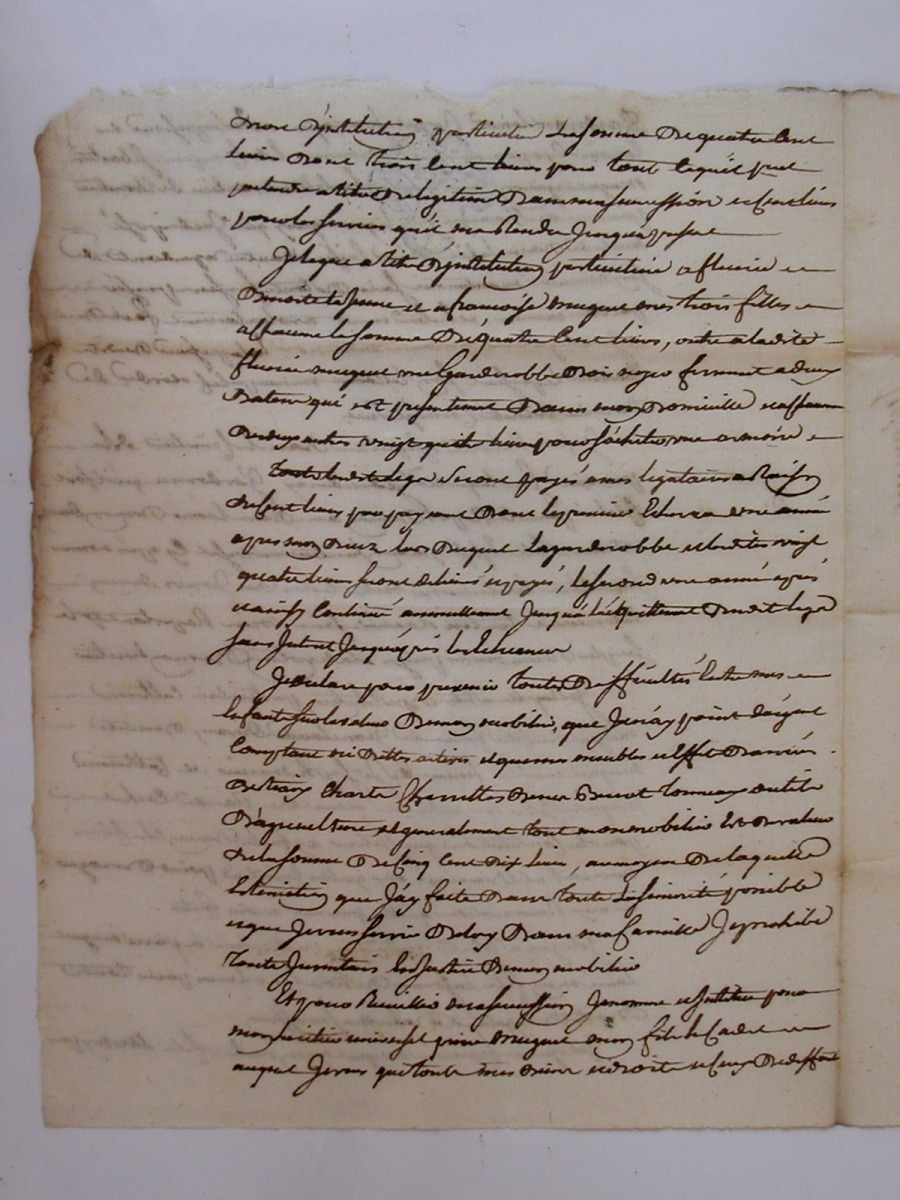 droit d'institution particulière la somme de quatre cent
livres dont trois cent livres pour tout ce qu'il peut
pretendre a titre de legitime dans ma succession et cent livres
pour les services qu'il m'a rendu jusqu'a present
Je legue a titre d'institution particulière a fleurie et
Benoite la jeune et a francoise muguet mes trois filles et
a chacune la somme de quatre cent livres, outre a ladite
fleurie muguet une garderobbe bois noyer fermant a deux
batans qui est presentement dans mon domicille et a chacune
des deux autres vingt quatre livres pour s'acheter une armoire
Toute lesdits legs seront payés a mes legataires a raison
de cent livres par payement dont le premier echerra une année
apres mon deces lors duquel la garderobbe et lesdites vingt
quatre livres seront delivrés et payés, le second une année après
et ainsy continué annuellement jusqu'a l'acquittement dudit legs
sans interet jusqu'après les echeances
Je declare pour prevenir toutes difficultés entre mes
enfants sur la valeur de mon mobilier, que je n'ay point d'argent
comptant ni dettes actives et que mes meubles et effets danrées
bestiaux charte charrettes benes tonneaux outils
d'agriculture et generalement tout mon mobilier est de valeur
de la somme de cinq cent dix livres, au moyen de laquelle
estimation que j'ay faite dans toute la sincerité possible
et que je veux servir de loy dans ma famille je prohibe
toute inventaire en justice de mon mobilier
Et pour recueillir ma succession je nomme et institue pour
mon heritier universel pierre muguet mon fils le cadet
auquel je veux que toute mes biens et droits et ceux de deffunt